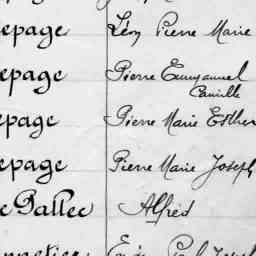 epage Léon Pierre Marie
epage Pierre Emmanuel
Camille
epage Pierre Marie Esther
epage Pierre Marie Joseph
e Gallee Alfred